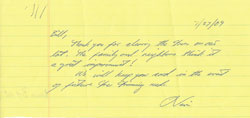 7/27/09
Bill,
Thank you for placing the Tree on our
lot. The family and neighbors think it
a great improvement!
We will keep you in mind in the event
of future Tree Trimming needs.